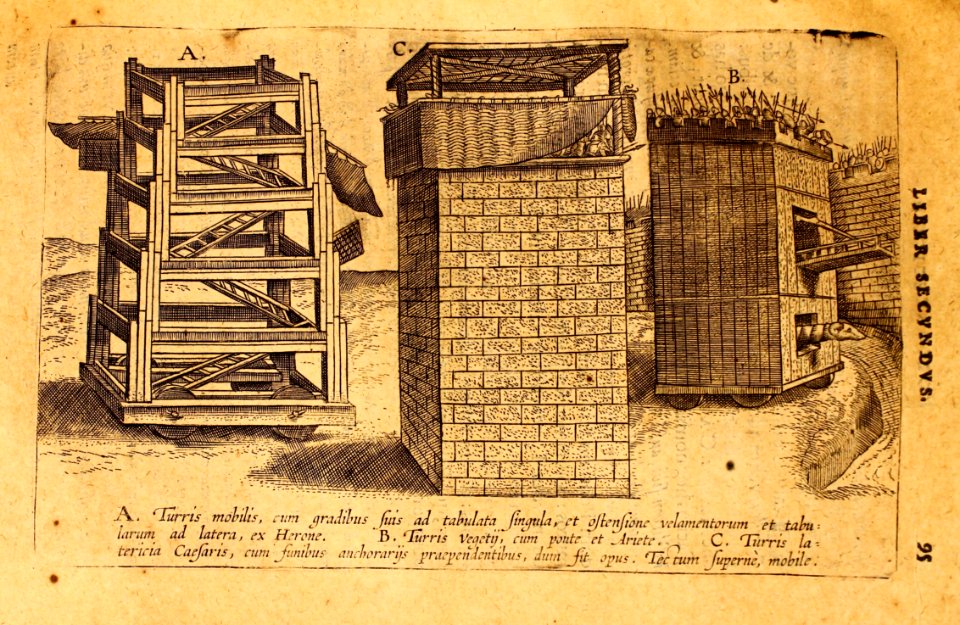 A.
C.
B.
LIBER SECVNDVS.
95
A. Turris mobilis, cum gradibus suis ad tabulata singula, et ostensione velamentorum et tabu:
larum ad latera, ex Herone. B. Turris vegetij, cum ponte et Ariete. C. Turris la:
tericia Caesaris, cum funibus anchorarijs praependentibus, dum fit opus. Tectum supernè, mobile.